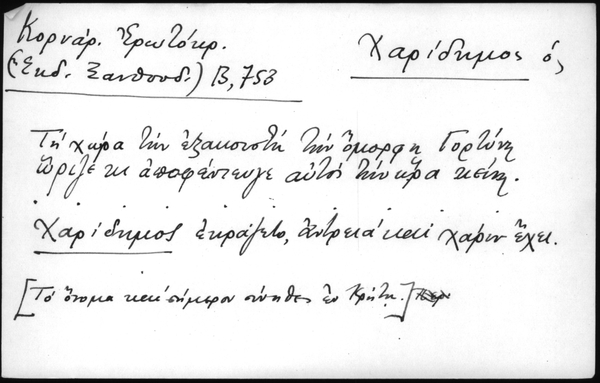 Κορνάρ. Ἐρωτόκρ.
(Ἐκδ. Ξανθουδ.) Β, 753
Χαρίδημος ὁ,
Τη χώρα τὴν ἐξακουστή τὴν ὄμορφη Γορτύνη
ὥριζε κι ἀποφέντευγε αὐτός τὴν ὥρα κείνη.
Χαρίδημος ἐκράζετο, ἀντρειά καί χάριν ἔχει.
[Τό ὄνομα καί σήμερον σύνηθες ἐν Κρήτῃ.]